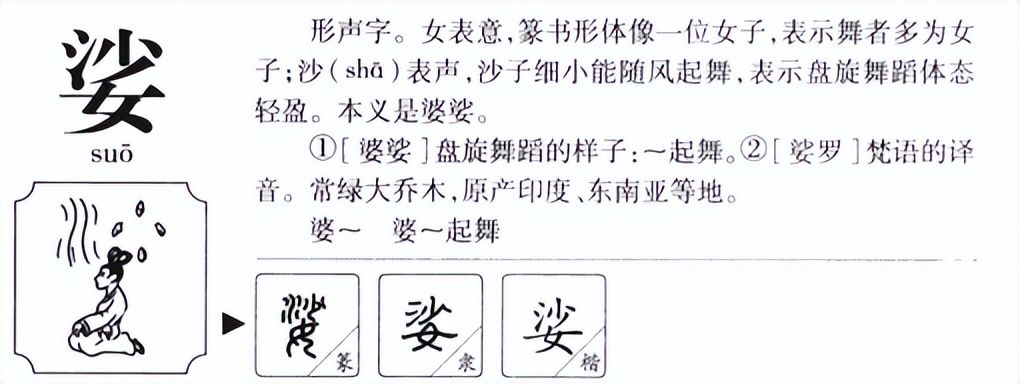 娑
suō
形声字。女表意,篆书形体像一位女子,表示舞者多为女
子;沙(shā)表声,沙子细小能随风起舞,表示盘旋舞蹈体态
轻盈。本义是婆娑。
①[婆娑]盘旋舞蹈的样子:~起舞。②[娑罗]梵语的译
音。常绿大乔木,原产印度、东南亚等地。
婆~ 婆~起舞
娑 篆
娑 隶
娑 楷